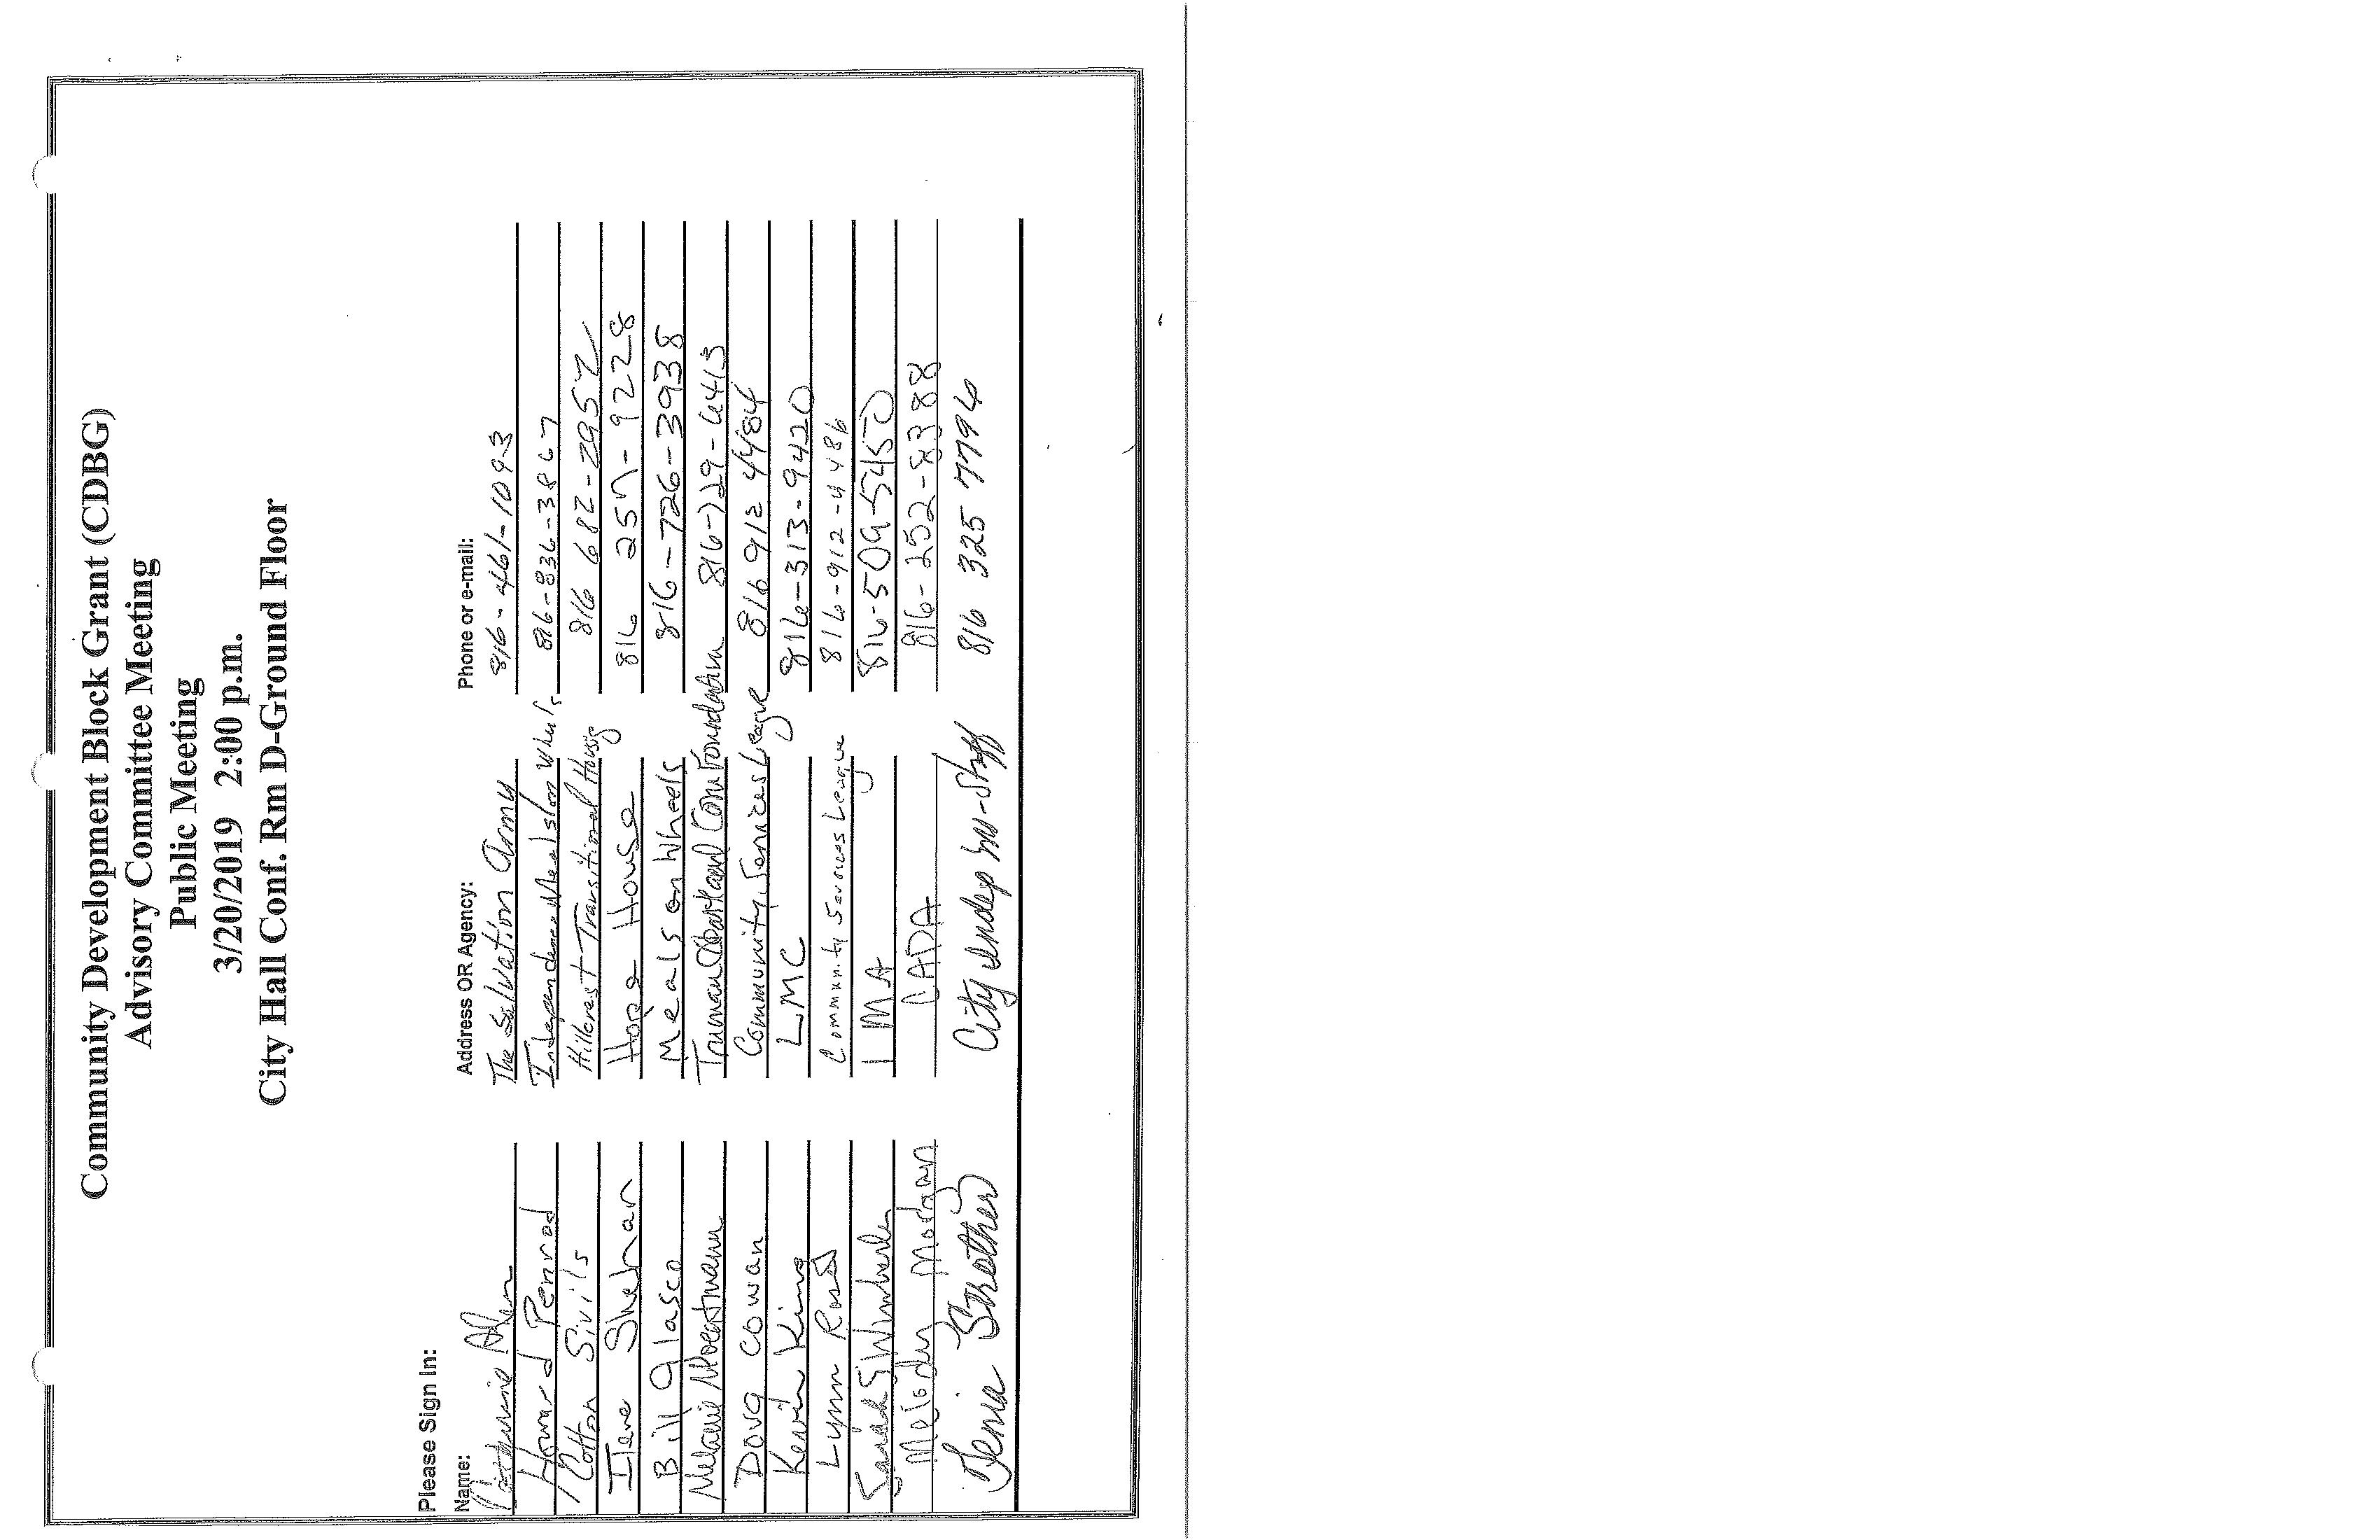 Community Development Block Grant (CDBG)
Advisory Committee Meeting
Public Meeting
3/20/2019 2:00 p.m.
City Hall Conf. Rm D-Ground Floor
Please Sign In:
Name: Address OR Agency: Phone or e-mail:
The Salvation Army 816-461-1093
Howard Penrod Independence Meals on Wheels 816-836-3867
Cotton Sivils Hillcrest Transitional Housing 816 682-2957
Ilene Shehan Hope House 816 257-9228
Bill Glasco Meals on Wheels 816-726-3938
Melanie Moentmann Truman Heartland Comm Foundation 816-729-6413
Doug Cowan Community Services League 816 912 4484
Kevin King LMC 816-313-9420
Lynn Rose Community Services League 816-912-4486
IMA 816-509-5450
Melody Morgan CADA 816-252-8388
Strother City Indep Staff 816 325 7794